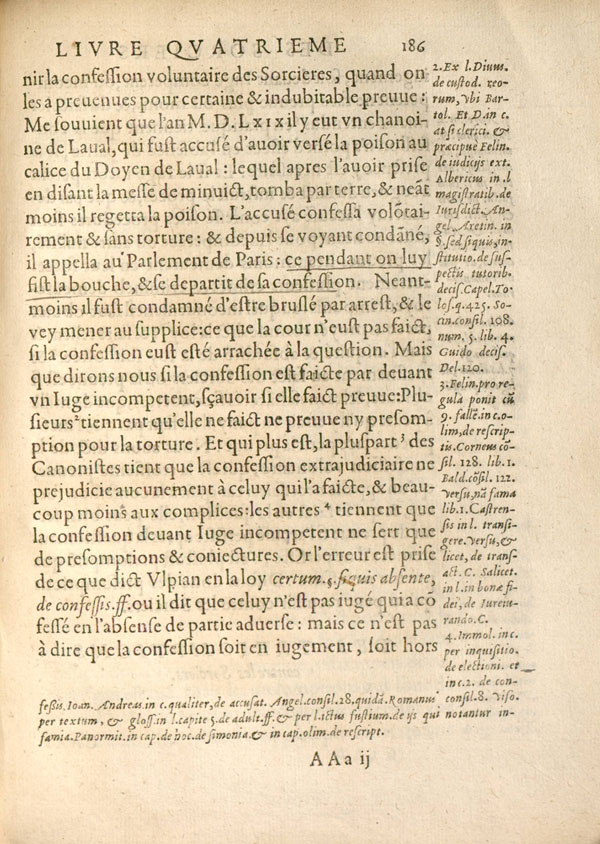 LIVRE QVATRIEME 186
nir la confession voluntaire des Sorcieres, quand on
les a preuenues pour certaine & indubitable preuue:
Me souuient que l'an M. D. LXIX il y eut vn chanoi-
ne de Laual, qui fust accusé d'auoir versé la poison au
calice du Doyen de Laual: lequel apres l'auoir prise
en disant la messe de minuict, tomba par terre, & neāt
moins il regetta la poison. L'accusé confessa volōtai-
rement & sans torture: & depuis se voyant condāné,
il appella au Parlement de Paris: ce pendant on luy
sist la bouche, & se departit de sa confession. Neant-
moins il fust condamné d'estre bruslé par arrest, & le
vey mener au supplice: ce que la cour n'eust pas faict,
si la confession eust esté arrachée à la question. Mais
que dirons nous si la confession est faicte par deuant
vn Iuge incompetent, sçauoir si elle faict preuue: Plu-
sieurs² tiennent qu'elle ne faict ne preuue ny presom-
ption pour la torture. Et qui plus est, la pluspart ³ des
Canonistes tient que la confession extrajudiciaire ne
prejudicie aucunement à celuy qui l'a faicte, & beau-
coup moins aux complices: les autres ⁴ tiennent que
la confession deuant Iuge incompetent ne sert que
de presomptions & coniectures. Or l'erreur est prise
de ce que dict Vlpian en la loy certum. §. si quis absente,
de confessis. ff. ou il dit que celuy n'est pas iugé qui a cō
fessé en l'absense de partie aduerse: mais ce n'est pas
à dire que la confession soit en iugement, soit hors
2. Ex l. Diuus.
de custod. reo-
rum, vbi Bar-
tol. Et D. in c.
at si clerici. &
præcipue Felin.
de iudicijs ext.
Albericus in. l
magistratib. de
Iurisdict. An-
gel. Aretin. in
§. sed si quis, in-
stitutio. de sus-
pectis tutorib.
decis. Capel. To-
los. q. 425. So-
cin. consil. 108.
num. 5. lib. 4.
Guido decis.
Del. 120.
3. Felin. pro re-
gula ponit cū
9. fallē. in c. o-
lim, de rescrip-
tis. Corneus cō-
sil. 128. lib. 1.
Bald. cōsil. 122.
versu, nā fama
lib. 1. Castren-
sis in l. transi-
gere. versu, &
licet, de trans-
act. C. Salicet.
in l. in bonæ fi-
dei, de Iureiu-
rando. C.
4. Immol. in c.
per inquisitio.
de electioni. et
in c. 2. de con-
fessis. Ioan. Andreas. in c. qualiter, de accusat. Angel. consil. 28. quidā. Romanus consil. 8. Viso.
per textum, & gloss. in l. capite 5. de adult. ff. & per l. ictus fustium. de ijs qui notantur in-
famia. Panormit. in cap. de hoc. de simonia. & in cap. olim. de rescript.
AAa ij